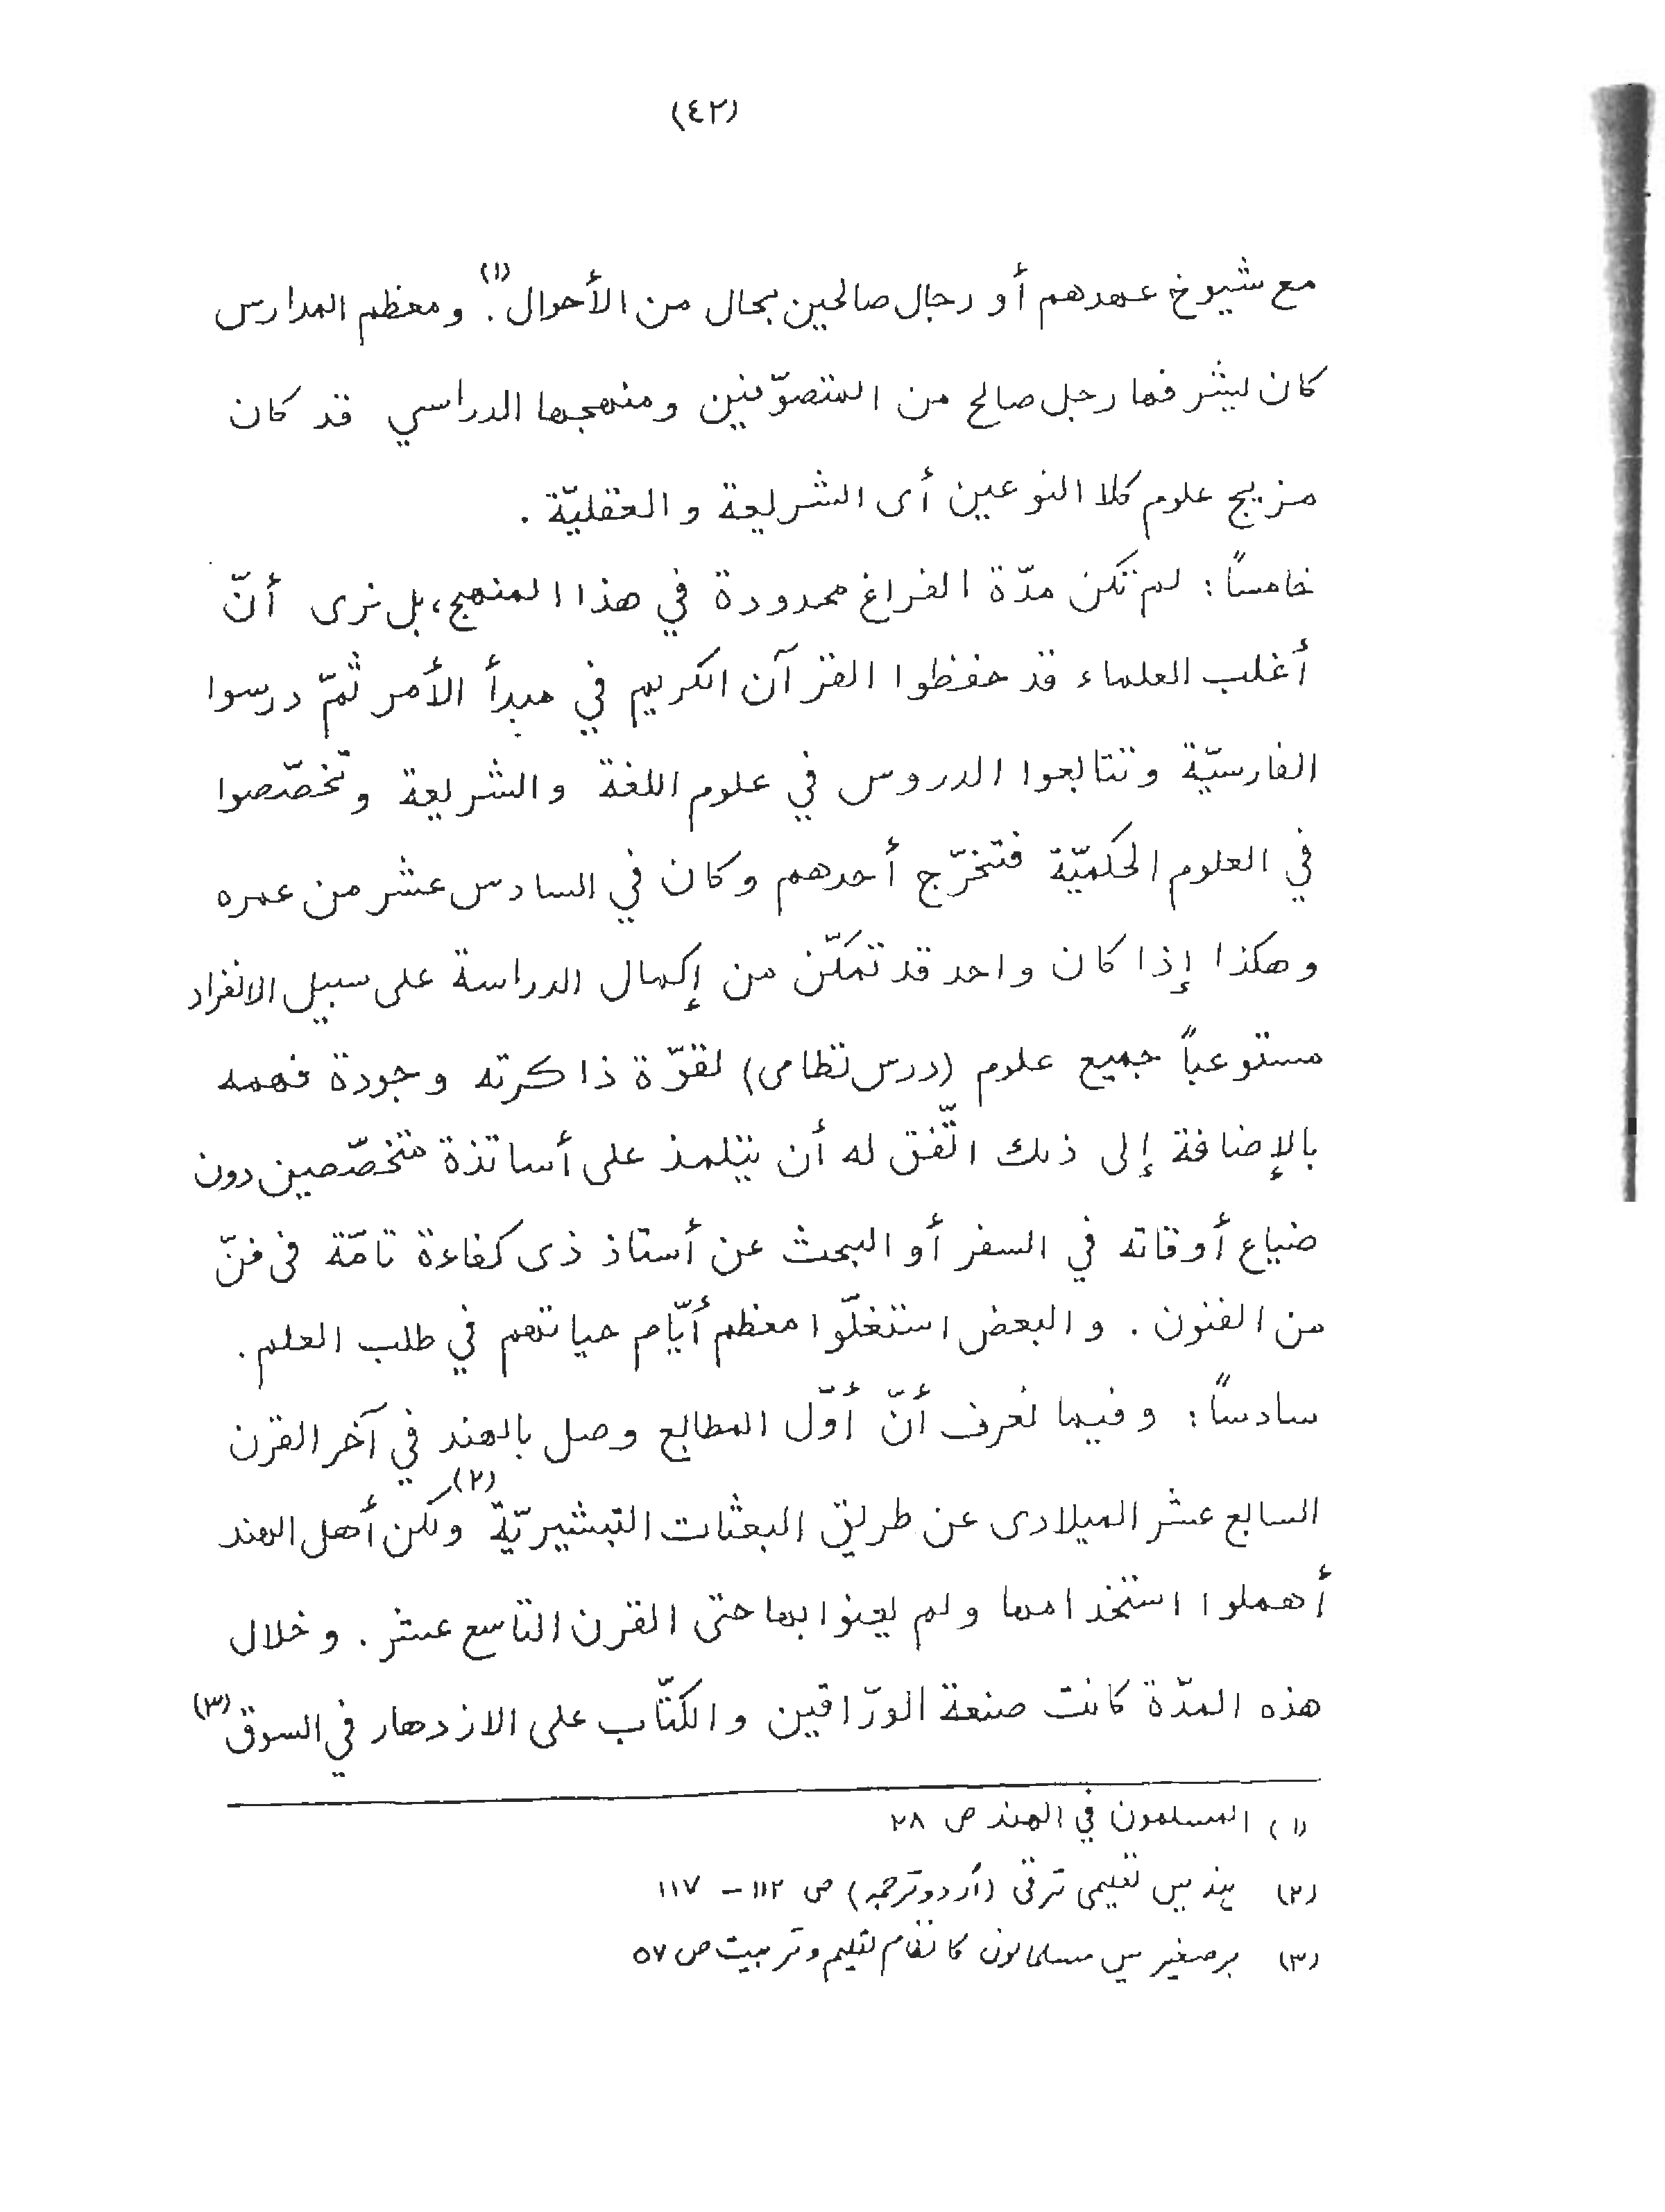 (٤٢)
مع شيوخ عهدهم أو رجال صالحين بحال من الأحوال.(١) ومعظم المدارس
كان يشرفها رجل صالح من المتصوّفين ومنهجها الدراسي قد كان
مزيج علوم كلا النوعين أى الشريعة والعقليّة .
خامساً : لم تكن مدّة الفراغ محدودة في هذا المنهج، بل نرى أنّ
أغلب العلماء قد حفظوا القرآن الكريم في مبدأ الأمر ثمّ درسوا
الفارسيّة وتتابعوا الدروس في علوم اللغة والشريعة وتخصّصوا
في العلوم الحكميّة فتخرّج أحدهم وكان في السادس عشر من عمره
وهكذا إذا كان واحد قد تمكّن من إكمال الدراسة على سبيل الانفراد
مستوعباً جميع علوم (درس نظامى) لقوّة ذاكرته وجودة فهمه
بالإضافة إلى ذلك اتّفق له أن يتلمذ على أساتذة متخصّصين دون
ضياع أوقاته في السفر أو البحث عن أستاذ ذى كفاءة تامّة فى فنّ
من الفنون . والبعض استغلّوا معظم أيّام حياتهم في طلب العلم .
سادساً : وفيما نعرف أنّ أوّل المطابع وصل بالهند في آخر القرن
السابع عشر الميلادى عن طريق البعثات التبشيريّة(٢) ولكن أهل الهند
أهملوا استخدامها ولم يعنوا بها حتى القرن التاسع عشر . وخلال
هذه المدّة كانت صنعة الورّاقين والكتّاب على الازدهار في السوق(٣)
(١) المسلمون في الهند ص ٢٨
(٢) ہند میں تعلیمی ترقی (أردو ترجمہ) ص ١١٢ - ١١٧
(٣) برصغیر میں مسلمانوں کا نظام تعلیم و تربیت ص ٥٧